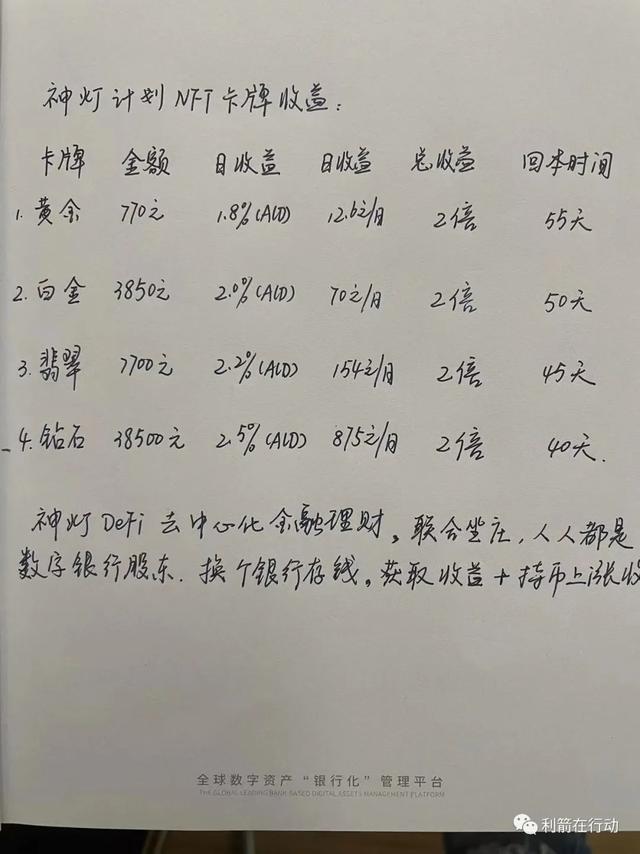 神灯计划NFT卡牌收益：
卡牌 金额 日收益 日收益 总收益 回本时间
1.黄金 770元 1.8%(ALD) 12.6元/日 2倍 55天
2.白金 3850元 2.0%(ALD) 70元/日 2倍 50天
3.翡翠 7700元 2.2%(ALD) 154元/日 2倍 45天
4.钻石 38500元 2.5%(ALD) 875元/日 2倍 40天.
神灯DeFi去中心化金融理财。联合坐庄，人人都是
数字银行股东.换个银行存钱。获取收益+持币上涨收
全球数字资产“银行化”管理平台
THE GLOBAL LEADING BANK-BASED DIGITAL ASSETS MANAGEMENT PLATFORM
利箭在行动